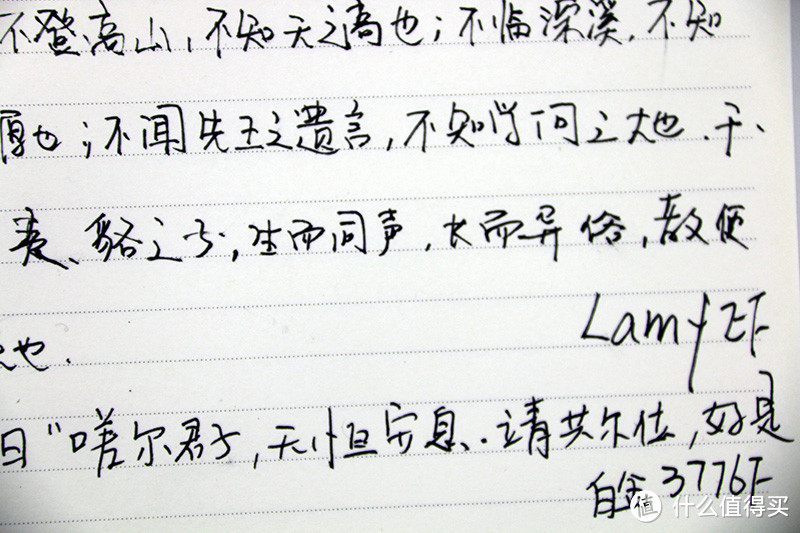 不登高山，不知天之高也；不临深溪，不知
厚也；不闻先王之遗言，不知学问之大也．干、
夷、貉之子，生而同声，长而异俗，教使
也．
Lamy EF
曰“嗟尔君子，无恒安息．靖共尔位，好是
白金3776F
值 什么值得买